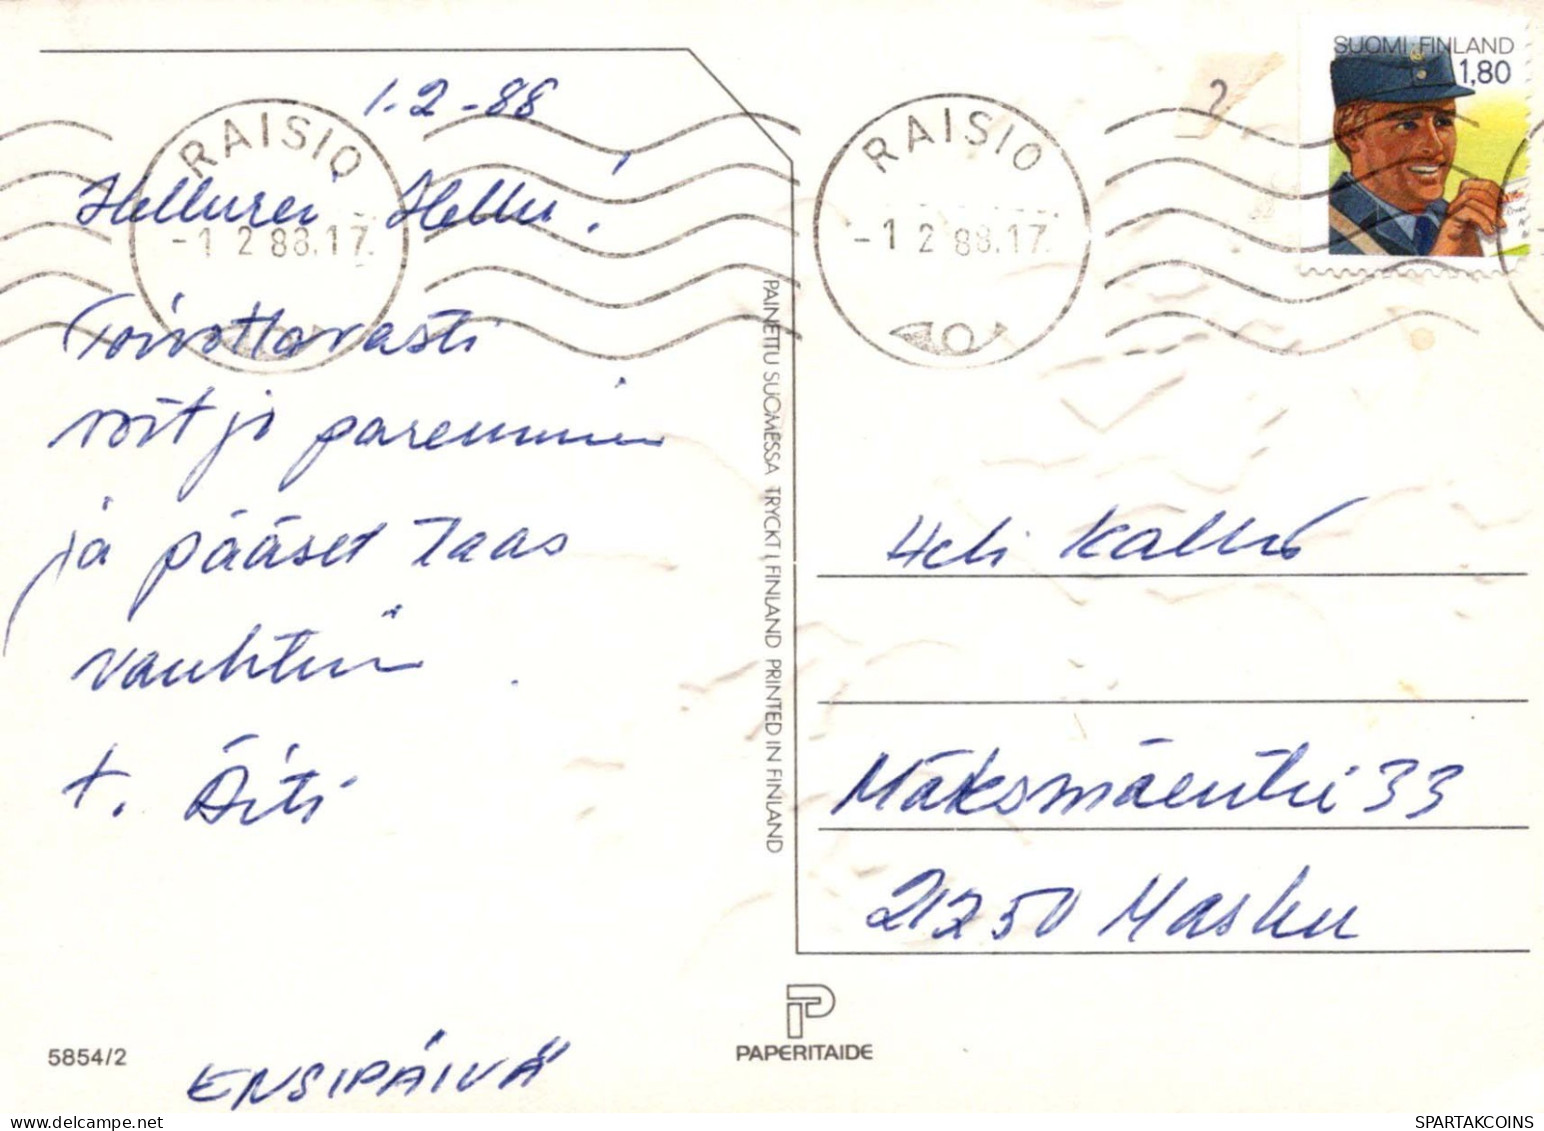 1.2-88
RAISIO
-1 2 88.17
Hellurei Hellu!
Toivottavasti
voit jo paremmin
ja pääset taas
vauhtiin
t. Äiti
5854/2
ENSIPÄIVÄ
PAINETTU SUOMESSA TRYCKT I FINLAND PRINTED IN FINLAND
PAPERITAIDE
RAISIO
-1 2 88.17
?
SUOMI FINLAND
1,80
Heli Kallio
Maksmäentie 33
21250 Masku
SPARTAKCOINS